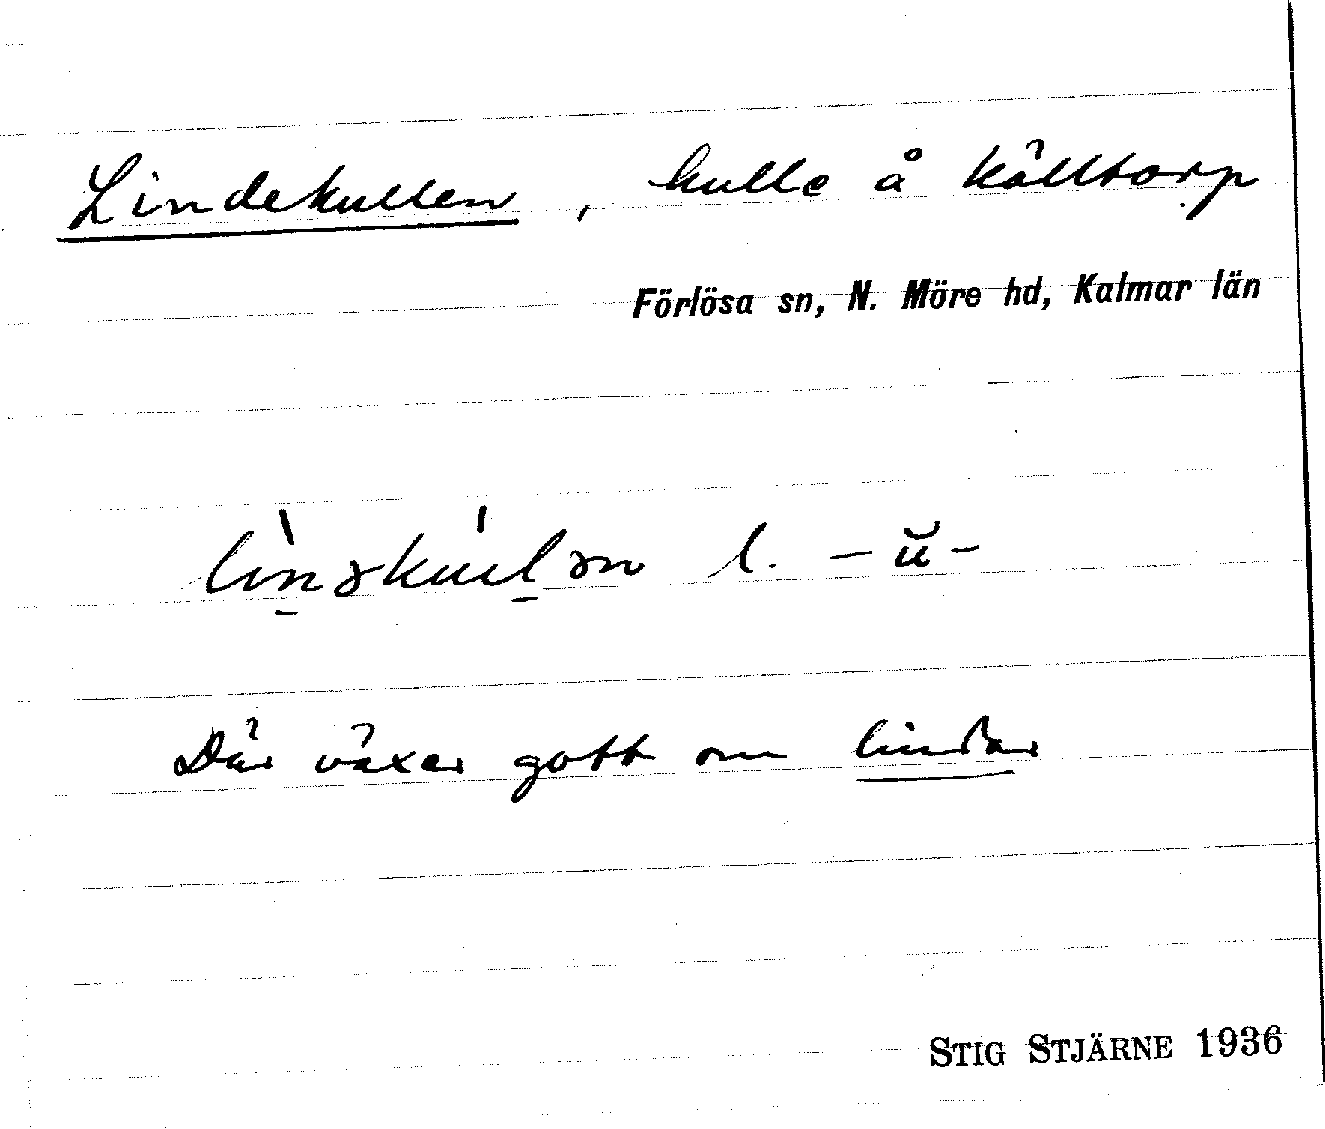 Lindekullen, kulle å Källtorp
Förlösa sn, N. Möre hd, Kalmar län
l. -ŭ-
Där växer gott om lindar
STIG STJÄRNE 1936